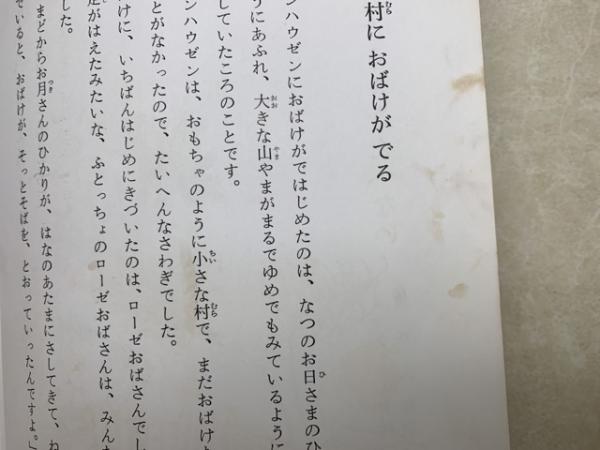 村に おばけが でる
ンハウゼンにおばけがではじめたのは、なつのお日さまのひ
うにあふれ、大きな山やまがまるでゆめでもみているように
していたころのことです。
ンハウゼンは、おもちゃのように小さな村で、まだおばけよ
とがなかったので、たいへんなさわぎでした。
けに、いちばんはじめにきづいたのは、ローゼおばさんでし
足がはえたみたいな、ふとっちょのローゼおばさんは、みんな
した。
まどからお月さんのひかりが、はなのあたまにさしてきて、ね
ていると、おばけが、そっとそばを、とおっていったんですよ。」